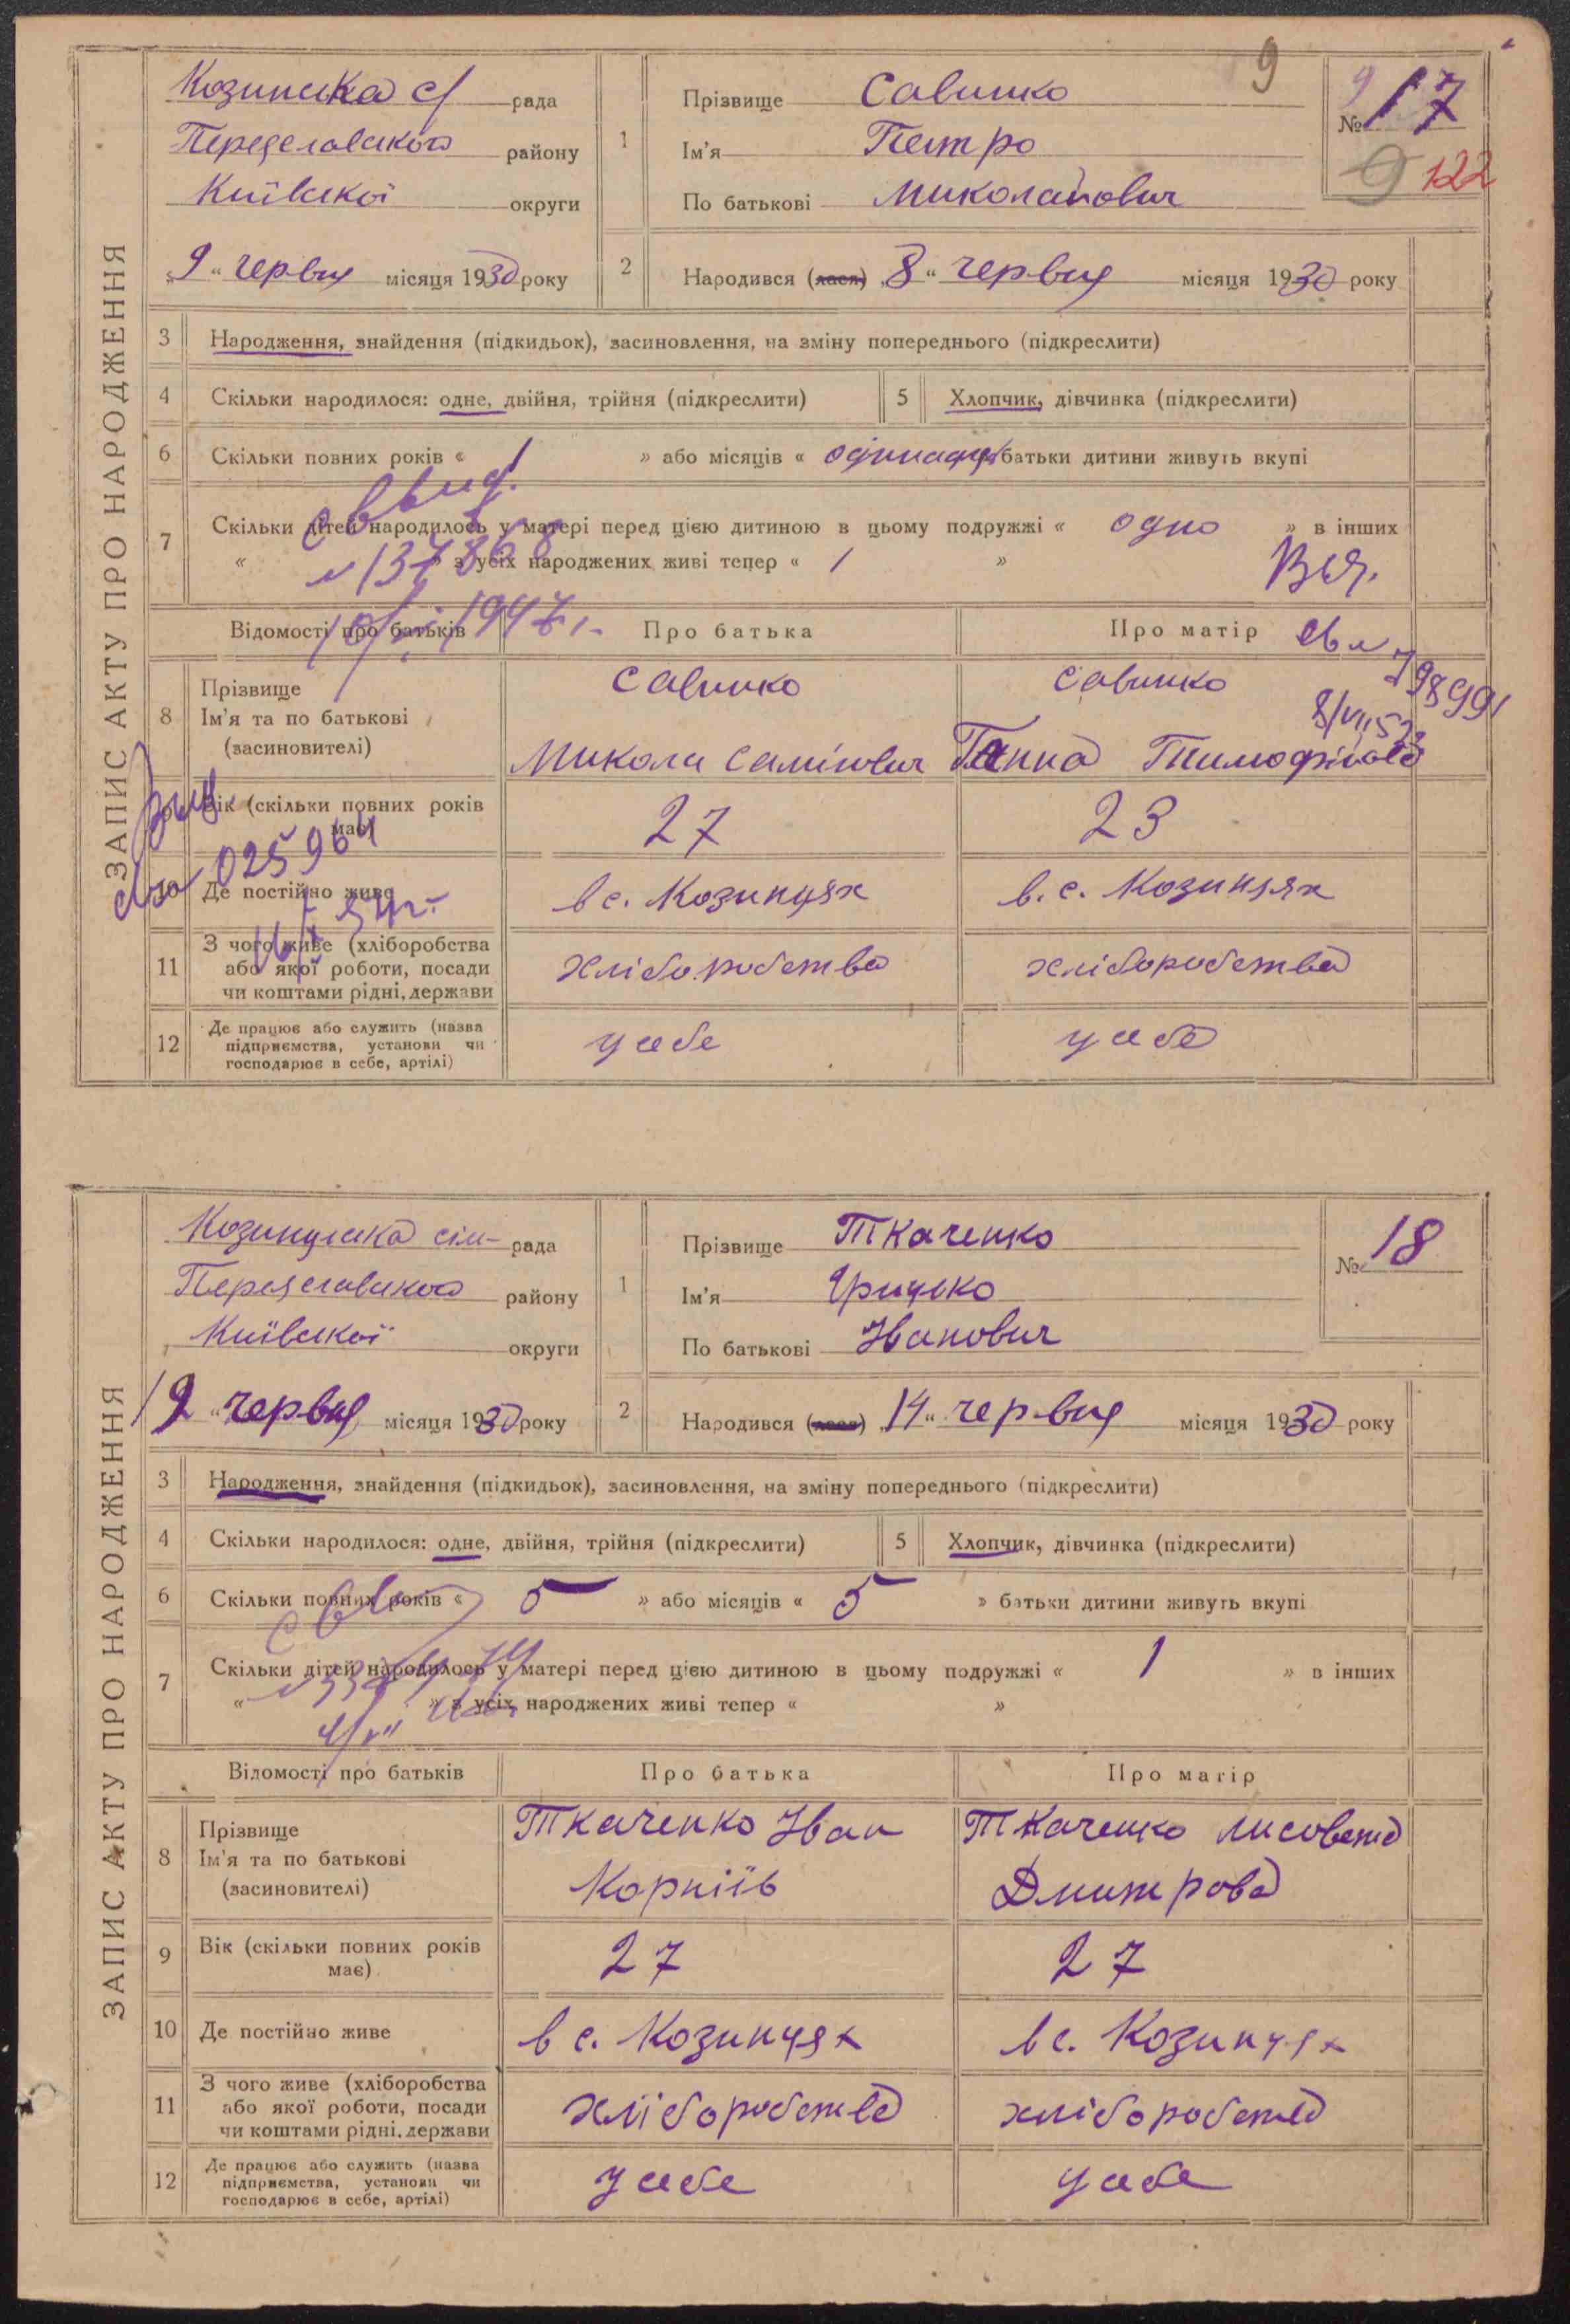 ЗАПИС АКТУ ПРО НАРОДЖЕННЯ
9
Козинська с/ рада
Переяславського району
Київської округи
„9“ червня місяця 1930 року
1 Прізвище Савинко
Ім'я Петро
По батькові Миколайович
№ 17
9 122
2 Народився (лася) „8“ червня місяця 1930 року
3 Народження, знайдення (підкидьок), засиновлення, на зміну попереднього (підкреслити)
4 Скільки народилося: одне, двійня, трійня (підкреслити) 5 Хлопчик, дівчинка (підкреслити)
6 Скільки повних років « 1 » або місяців « одинадця батьки дитини живуть вкупі
7 Скільки дітей народилось у матері перед цією дитиною в цьому подружжі « одно » в інших
« » з усіх народжених живі тепер « 1 »
Відомості про батьків Про батька Про матір
8 Прізвище Савинко Савинко
Ім'я та по батькові
(засновителі) Микола Ганна Тимофіївна
9 Вік (скільки повних років має) 27 23
025964
10 Де постійно живе в с. Козинцях в. с. Козинцях
11 З чого живе (хліборобства або якої роботи, посади чи коштами рідні, держави хліборобства хліборобства
12 Де працює або служить (назва підприємства, установи чи господарює в себе, артілі) у себе у себе
ЗАПИС АКТУ ПРО НАРОДЖЕННЯ
Козинцська сіл- рада
Переяславського району
Київської округи
19 “ червня місяця 1930 року
1 Прізвище Ткаченко
Ім'я Грицько
По батькові Іванович
№ 18
2 Народився (лася) „14“ червня місяця 1930 року
3 Народження, знайдення (підкидьок), засиновлення, на зміну попереднього (підкреслити)
4 Скільки народилося: одне, двійня, трійня (підкреслити) 5 Хлопчик, дівчинка (підкреслити)
6 Скільки повних років « 5 » або місяців « 5 » батьки дитини живуть вкупі
7 Скільки дітей народилось у матері перед цією дитиною в цьому подружжі « 1 » в інших
« » з усіх народжених живі тепер « »
Відомості про батьків Про батька Про матір
8 Прізвище Ткаченко Іван Ткаченко Лисовета
Ім'я та по батькові
(засиновителі) Корніїв Дмитрова
9 Вік (скільки повних років має) 27 27
10 Де постійно живе в с. Козинцях в с. Козинцях
11 З чого живе (хліборобства або якої роботи, посади чи коштами рідні, держави хліборобства хліборобства
12 Де працює або служить (назва підприємства, установи чи господарює в себе, артілі) у себе у себе